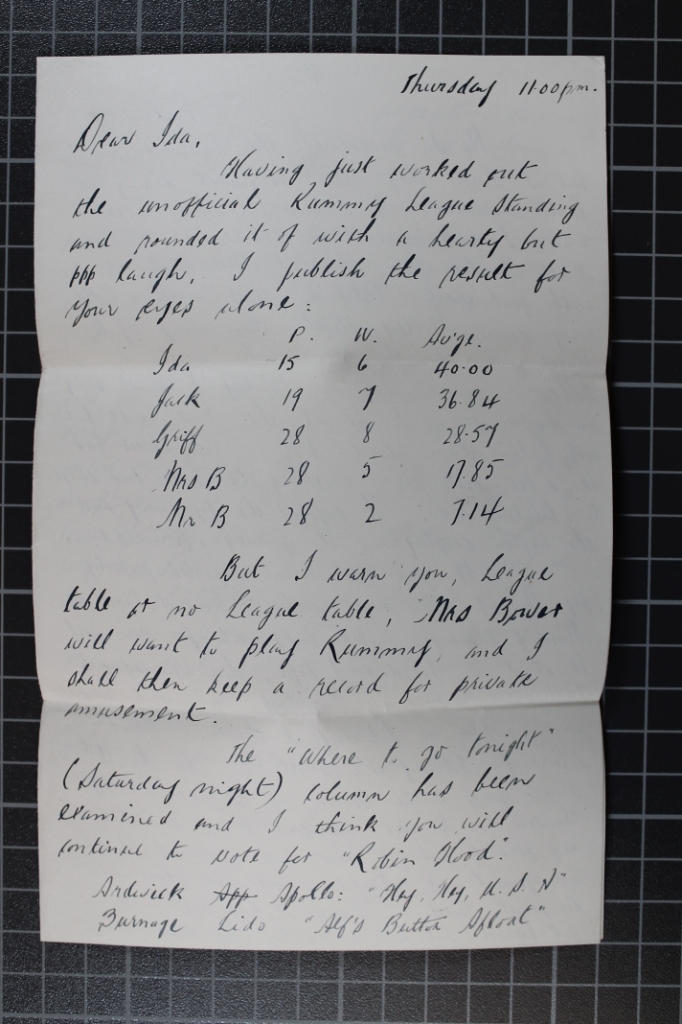 Thursday 11.00pm.
Dear Ida,
Having just worked out
the unofficial Rummy League standing
and rounded it of with a hearty but
ppp laugh, I publish the result for
your eyes alone:
P. W. Av'ge.
Ida 15 6 40.00
Jack 19 7 36.84
Griff 28 8 28.57
Mrs B 28 5 17.85
Mr B 28 2 7.14
But I warn you, League
table or no League table, Mrs Bower
will want to play Rummy, and I
shall then keep a record for private
amusement.
The "Where to go tonight"
(Saturday night) column has been
examined and I think you will
continue to vote for "Robin Hood".
Ardwick App Apollo: "Hey, Hey, U.S.A"
Burnage Lido "Alf's Button Afloat"